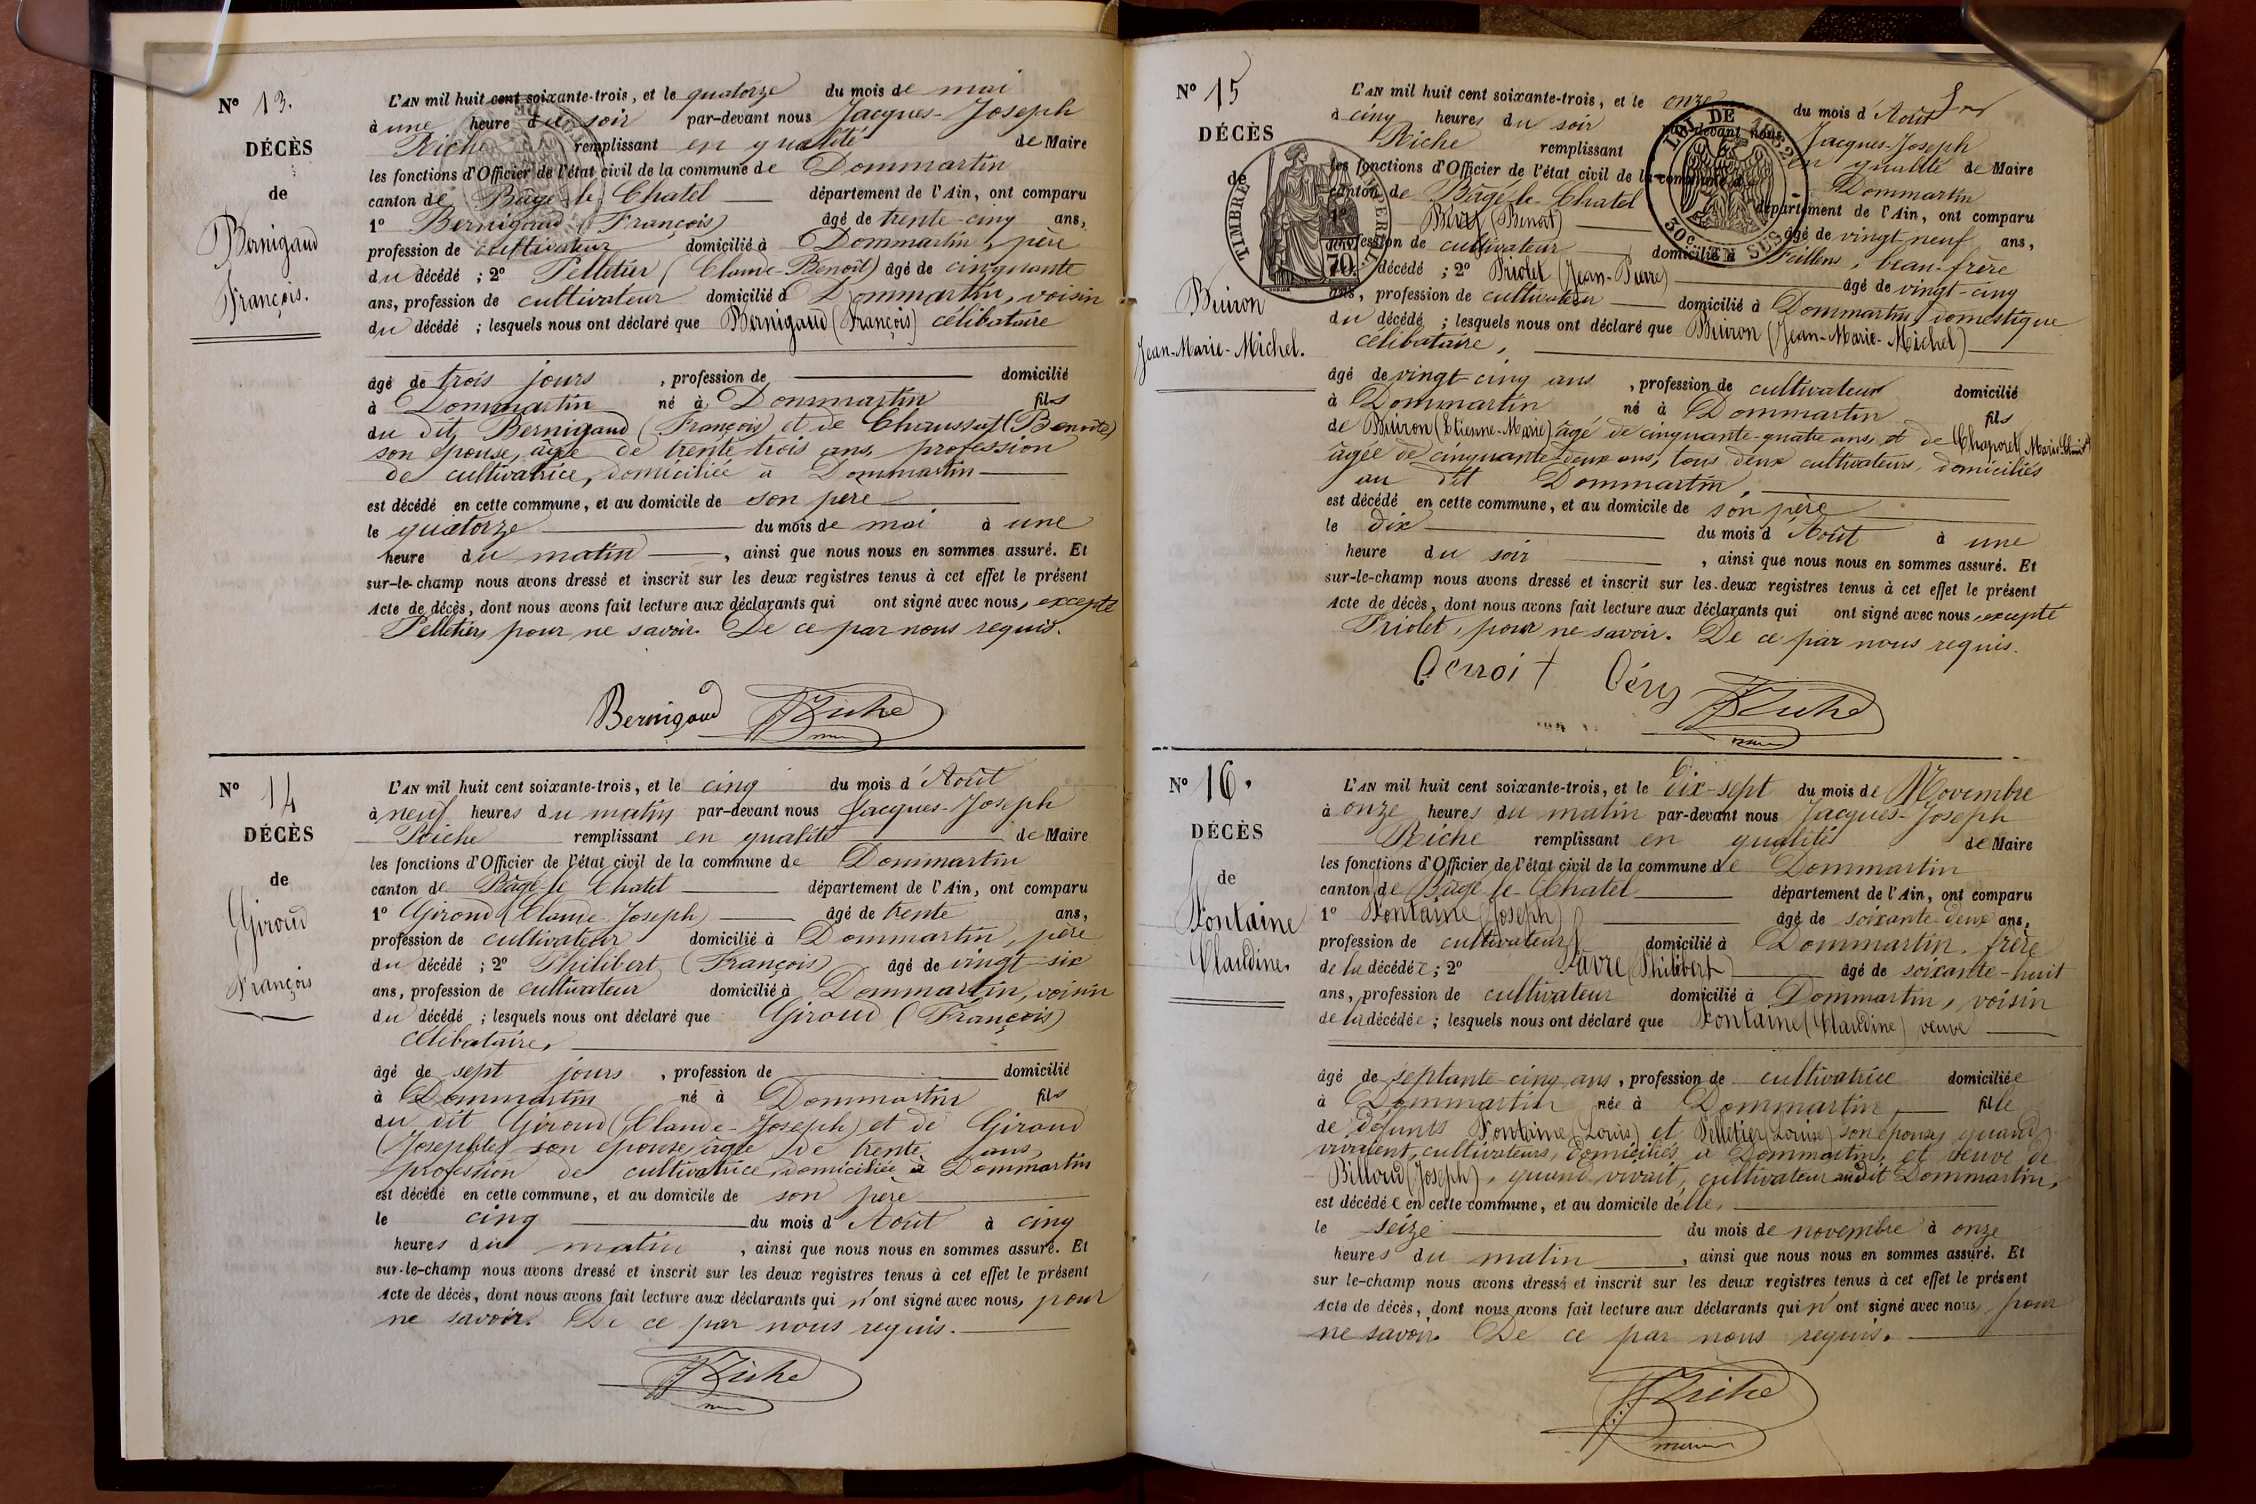 Nº 13.
DÉCÈS
de
Bernigaud
François.
L'AN mil huit cent soixante-trois, et le quatorze du mois de mai
à une heure du soir par-devant nous Jacques-Joseph
Riche remplissant en qualité de Maire
les fonctions d'Officier de l'état civil de la commune de Dommartin
canton de Bâgé-le-Chatel département de l'Ain, ont comparu
1º Bernigaud (François) âgé de trente-cinq ans,
profession de cultivateur domicilié à Dommartin, père
du décédé ; 2º Pelletier (Claude-Benoît) âgé de cinquante
ans, profession de cultivateur domicilié à Dommartin, voisin
du décédé ; lesquels nous ont déclaré que Bernigaud (François) célibataire
âgé de trois jours , profession de domicilié
à Dommartin né à Dommartin fils
du dit Bernigaud (François) et de Chaussat (Benoîte)
son épouse, âgée de trente-trois ans, profession
de cultivatrice, domiciliée à Dommartin
est décédé en cette commune, et au domicile de son père
le quatorze du mois de mai à une
heure du matin , ainsi que nous nous en sommes assuré. Et
sur-le-champ nous avons dressé et inscrit sur les deux registres tenus à cet effet le présent
Acte de décès, dont nous avons fait lecture aux déclarants qui ont signé avec nous, excepté
Pelletier, pour ne savoir. De ce par nous requis.
Bernigaud Riche
Nº 14
DÉCÈS
de
Giroud
François
L'AN mil huit cent soixante-trois, et le cinq du mois d'Août
à neuf heures du matin par-devant nous Jacques-Joseph
Riche remplissant en qualité de Maire
les fonctions d'Officier de l'état civil de la commune de Dommartin
canton de Bâgé-le-Chatel département de l'Ain, ont comparu
1º Giroud (Claude-Joseph) âgé de trente ans,
profession de cultivateur domicilié à Dommartin, père
du décédé ; 2º Philibert (François) âgé de vingt-six
ans, profession de cultivateur domicilié à Dommartin, voisin
du décédé ; lesquels nous ont déclaré que Giroud (François)
célibataire,
âgé de sept jours , profession de domicilié
à Dommartin né à Dommartin fils
du dit Giroud (Claude-Joseph) et de Giroud
(Josephte) son épouse, âgée de trente ans,
profession de cultivatrice, domiciliée à Dommartin
est décédé en cette commune, et au domicile de son père
le cinq du mois d'Août à cinq
heures du matin , ainsi que nous nous en sommes assuré. Et
sur-le-champ nous avons dressé et inscrit sur les deux registres tenus à cet effet le présent
Acte de décès, dont nous avons fait lecture aux déclarants qui n'ont signé avec nous, pour
ne savoir. De ce par nous requis.
Riche
Nº 15
DÉCÈS
de
Buiron
Jean-Marie-Michel.
TIMBRE IMPERIAL
70
L'AN mil huit cent soixante-trois, et le onze du mois d'Août
à cinq heures du soir par-devant nous Jacques-Joseph
Riche remplissant en qualité de Maire
les fonctions d'Officier de l'état civil de la commune de Dommartin
canton de Bâgé-le-Chatel département de l'Ain, ont comparu
1º (Benoît) âgé de vingt-neuf ans,
profession de cultivateur domicilié à Feillens, beau-frère
décédé ; 2º Triolet (Jean-Pierre) âgé de vingt-cinq
ans, profession de cultivateur domicilié à Dommartin, domestique
du décédé ; lesquels nous ont déclaré que Buiron (Jean-Marie-Michel)
célibataire,
âgé de vingt-cinq ans , profession de cultivateur domicilié
à Dommartin né à Dommartin fils
de Buiron (Etienne-Marie) âgé de cinquante-quatre ans, et de
âgée de cinquante-deux ans, tous deux cultivateurs, domiciliés
au dit Dommartin,
est décédé en cette commune, et au domicile de son père
le dix du mois d'Août à une
heure du soir , ainsi que nous nous en sommes assuré. Et
sur-le-champ nous avons dressé et inscrit sur les deux registres tenus à cet effet le présent
Acte de décès, dont nous avons fait lecture aux déclarants qui ont signé avec nous, excepté
Triolet, pour ne savoir. De ce par nous requis.
Riche
Nº 16.
DÉCÈS
de
Fontaine
Claudine.
L'AN mil huit cent soixante-trois, et le dix-sept du mois de Novembre
à onze heures du matin par-devant nous Jacques-Joseph
Riche remplissant en qualité de Maire
les fonctions d'Officier de l'état civil de la commune de Dommartin
canton de Bâgé-le-Chatel département de l'Ain, ont comparu
1º Fontaine (Joseph) âgé de soixante-deux ans,
profession de cultivateur domicilié à Dommartin, frère
de la décédée ; 2º Favre (Philibert) âgé de soixante-huit
ans, profession de cultivateur domicilié à Dommartin, voisin
de la décédée ; lesquels nous ont déclaré que Fontaine (Claudine) veuve
âgé de septante-cinq ans, profession de cultivatrice domiciliée
à Dommartin née à Dommartin, fille
de défunts Fontaine (Louis) et Pelletier (Louise) son épouse, quand
vivaient, cultivateurs, domiciliés à Dommartin, et veuve de
Billoud (Joseph), quand vivait, cultivateur audit Dommartin,
est décédée en cette commune, et au domicile d'elle,
le seize du mois de novembre à onze
heures du matin , ainsi que nous nous en sommes assuré. Et
sur le-champ nous avons dressé et inscrit sur les deux registres tenus à cet effet le présent
Acte de décès, dont nous avons fait lecture aux déclarants qui n'ont signé avec nous, pour
ne savoir. De ce par nous requis.
Riche